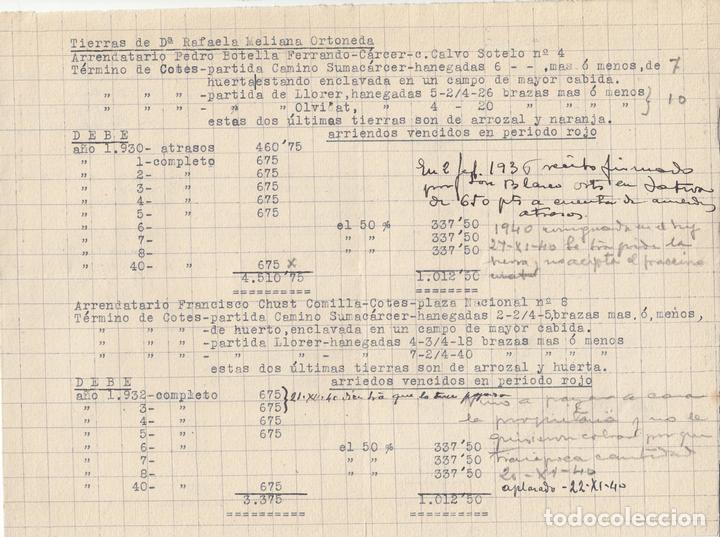 Tierras de Dª Rafaela Meliana Ortoneda
Arrendatario Pedro Botella Ferrando-Cárcer-c. Calvo Sotelo nº 4
Término de Cotes-partida Camino Sumacárcer-hanegadas 6 - - ,mas ó menos, de 7
huerto estando enclavada en un campo de mayor cabida.
" " " -partida de Llorer, hanegadas 5-2/4-26 brazas mas ó menos
" " " - " " Olvi at, " 4 - 20 " " " " } 10
estas dos últimas tierras son de arrozal y naranja.
D E B E arriendos vencidos en periodo rojo
año 1.930- atrasos 460'75
" 1-completo 675
" 2- " 675
" 3- " 675
" 4- " 675
" 5- " 675
" 6- el 50 % 337'50
" 7- " " 337'50
" 8- " " 337'50
" 40- " 675 x
4.510'75 1.012'50
En 2 1936 recibo firmado
por José Blanco orts en Jativa
de 650 pts a cuenta de
atrasos.
1940 en el
27-XI-40 la
no acepta el
========= =========
Arrendatario Francisco Chust Comilla-Cotes-plaza Nacional nº 8
Término de Cotes-partida Camino Sumacárcer-hanegadas 2-2/4-5,brazas mas,ó,menos,
" " " -de huerto,enclavada en un campo de mayor cabida.
" " " -partida Llorer-hanegadas 4-3/4-18 brazas mas ó menos
" " " - " - " - " 7-2/4-40 " " " "
estas dos últimas tierras son de arrozal y huerta.
D E B E arriedos vencidos en periodo rojo
año 1.932-completo 675
" 3- " 675 } 21-XI-40 que lo tiene pagado
" 4- " 675
" 5- " 675
" 6- el 50 % 337'50
" 7- " " 337'50
" 8- " " 337'50
" 40- " 675
3.375 1.012'50
vino a pagar a casa
la propietaria y no le
quisieron cobrar por que
cantidad
20-XI-40
aplazado -22-XI-40
========= =========
todocoleccion
todocoleccion.net